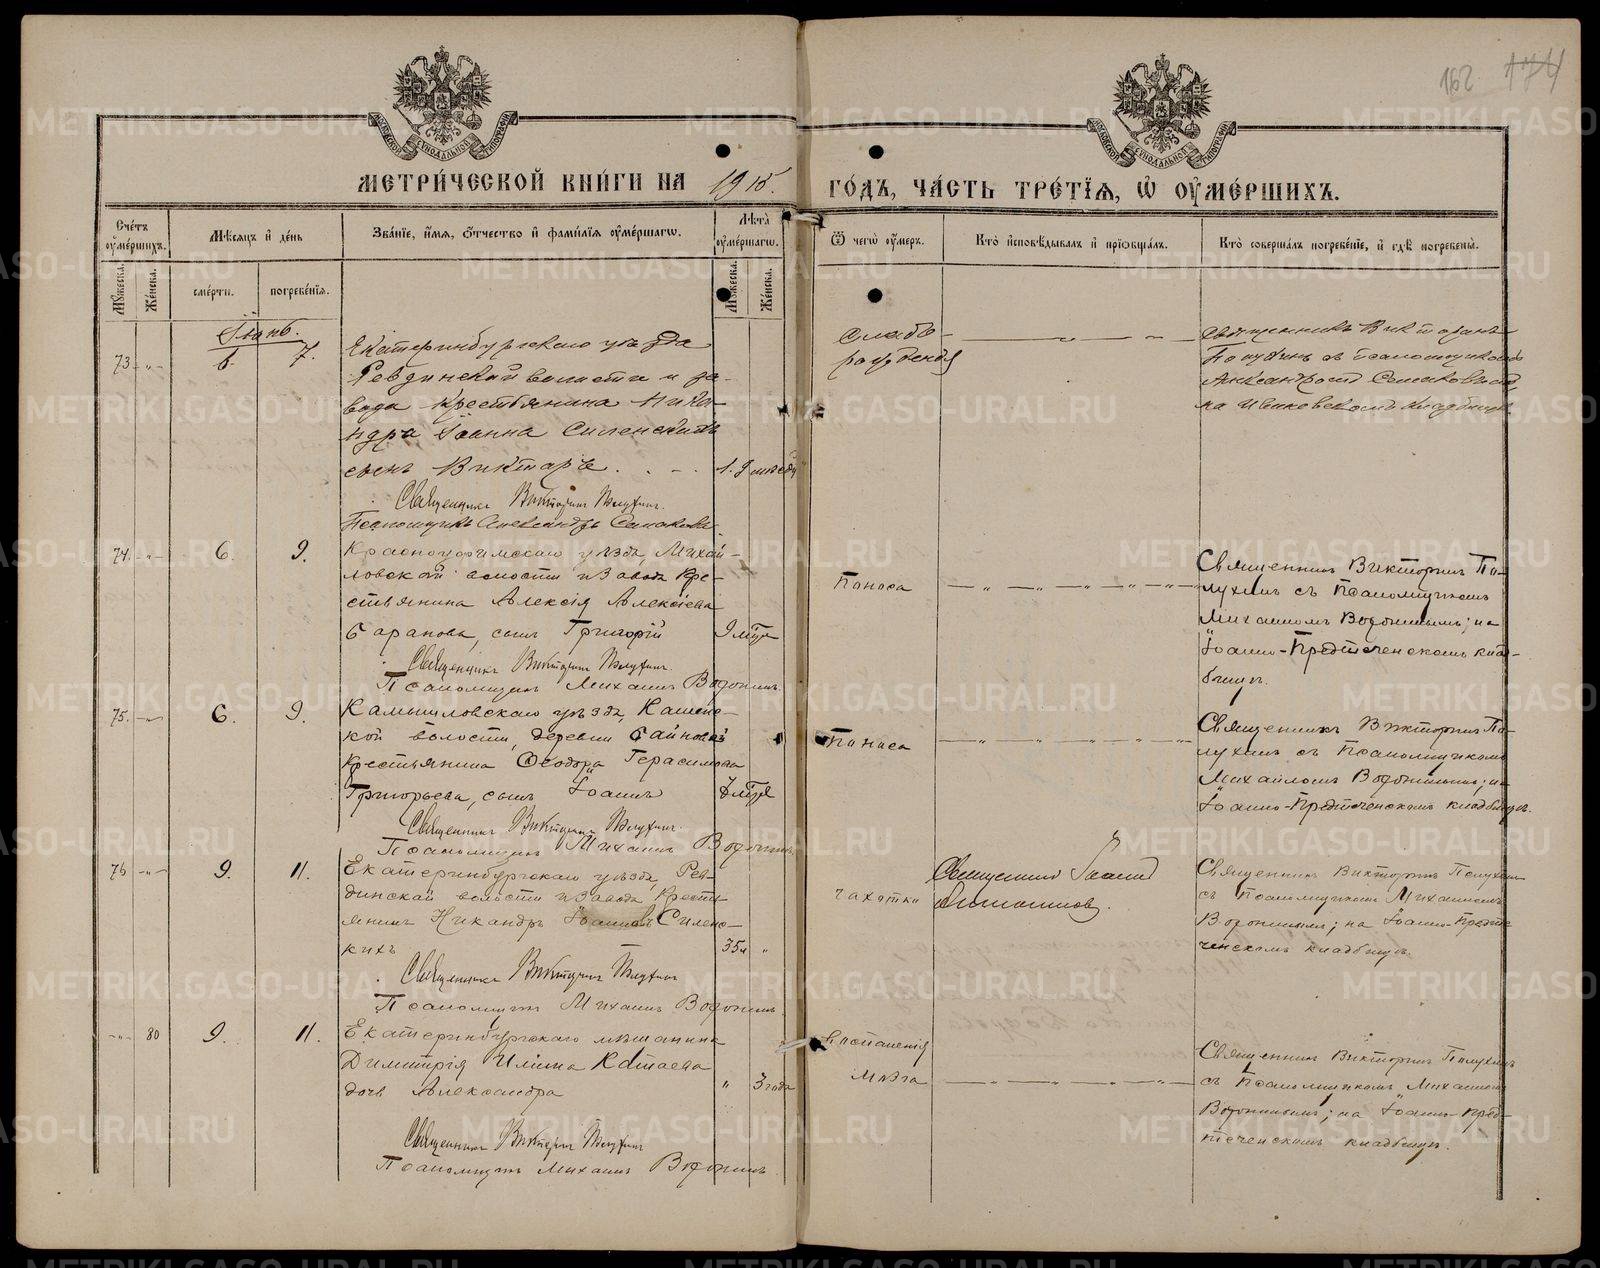 162 174
МЕТРИ́ЧЕСКОЙ КНИ́ГИ НА 1915. ГО́ДЪ, ЧА́СТЬ ТРЕ́ТІѦ, Ѽ ОУМЕ́РШИХЪ.
Сче́тъ оумершихъ.
Мѣ́сѧцъ и день
Зва́нїе, и́мѧ, ѻ҆́тчество и фами́лїѧ оумершагѡ.
Лѣ́та оумершагѡ.
Ѿ чегѡ̀ оумеръ.
Кто̀ исповѣ́дывалъ и прїѡбща́лъ.
Кто̀ соверша́лъ погребе́нїе, и гдѣ̀ погребены̀.
Мꙋ́жеска.
Же́нска.
сме́рти.
погребе́нїѧ.
Мꙋ́жеска.
Же́нска.
Іюнь.
73 6. 7.
Екатеринбургскаго уѣзда
Ревдинской волости и за-
вода крестьянина Ника-
ндра Іоанна Силенскихъ
сынъ Викторъ
Священникъ Викторинъ Полухинъ.
Псаломщикъ Александръ
Слабо-
рожденія
Священникъ Викторинъ
Полухинъ съ псаломщикомъ
Александромъ
на Ивановскомъ кладбищѣ
74. 6. 9.
Красноуфимскаго уѣзда, Михай-
ловской волости и Завода Кре-
стьянина Алексія Алексіева
Баранова, сынъ Григорій
Священникъ Викторинъ Полухинъ.
Псаломщикъ Михаилъ
Поноса
Священникъ Викторинъ По-
лухинъ съ Псаломщикомъ
Михаиломъ
Іоанно-Предтеченскомъ клад-
бищѣ.
75. 6. 9.
Камышловскаго уѣзда, Камен-
ской волости, деревни Байновой
Крестьянина Ѳеодора Герасимова
Григорьева, сынъ Іоаннъ
Священникъ Викторинъ Полухинъ.
Псаломщикъ Михаилъ
Поноса
Священникъ Викторинъ По-
лухинъ съ Псаломщикомъ
Михаиломъ
Іоанно-Предтеченскомъ кладбищѣ.
76 9. 11.
Екатеринбургскаго уѣзда, Рев-
динской волости и Завода Кресть-
янинъ Никандръ Іоанновъ Силенс-
кихъ 35л
Священникъ Викторинъ Полухинъ
Псаломщикъ Михаилъ
Чахотки
Священникъ Іоаннъ
Священникъ Викторинъ Полухинъ
съ Псаломщикомъ Михаиломъ
на Іоанно-Предте-
ченскомъ кладбищѣ.
80 9. 11.
Екатеринбургскаго мѣщанина
Димитрія Ильина Катаева
дочь Александра 3 года
Священникъ Викторинъ Полухинъ
Псаломщикъ Михаилъ
Воспаленія
мозга
Священникъ Викторинъ Полухинъ
съ Псаломщикомъ Михаиломъ
на Іоанно-Пред-
теченскомъ кладбищѣ.
METRIKI.GASO-URAL.RU